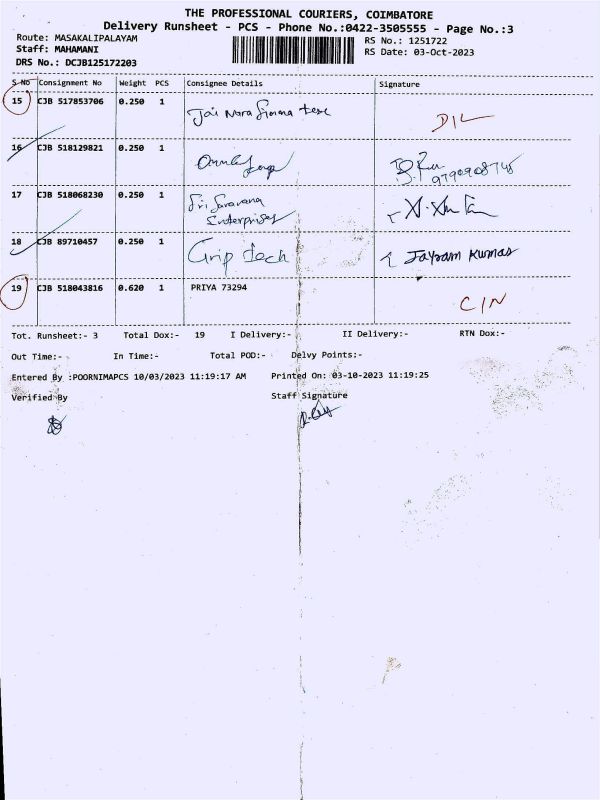 THE PROFESSIONAL COURIERS, COIMBATORE
Delivery Runsheet - PCS - Phone No.:0422-3505555 - Page No.:3
Route: MASAKALIPALAYAM RS No.: 1251722
Staff: MAHAMANI RS Date: 03-Oct-2023
DRS No.: DCJB125172203
S No Consignment No Weight PCS Consignee Details Signature
15 CJB 517853706 0.250 1 Jai Nara Simma D/L
16 CJB 518129821 0.250 1 9790908745
17 CJB 518068230 0.250 1 Sri Saravana
Enterprises
18 CJB 89710457 0.250 1 Grip Tech Jayram Kumar
19 CJB 518043816 0.620 1 PRIYA 73294 C/N
Tot. Runsheet:- 3 Total Dox:- 19 I Delivery:- II Delivery:- RTN Dox:-
Out Time:- In Time:- Total POD:- Delvy Points:-
Entered By :POORNIMAPCS 10/03/2023 11:19:17 AM Printed On: 03-10-2023 11:19:25
Verified By Staff Signature